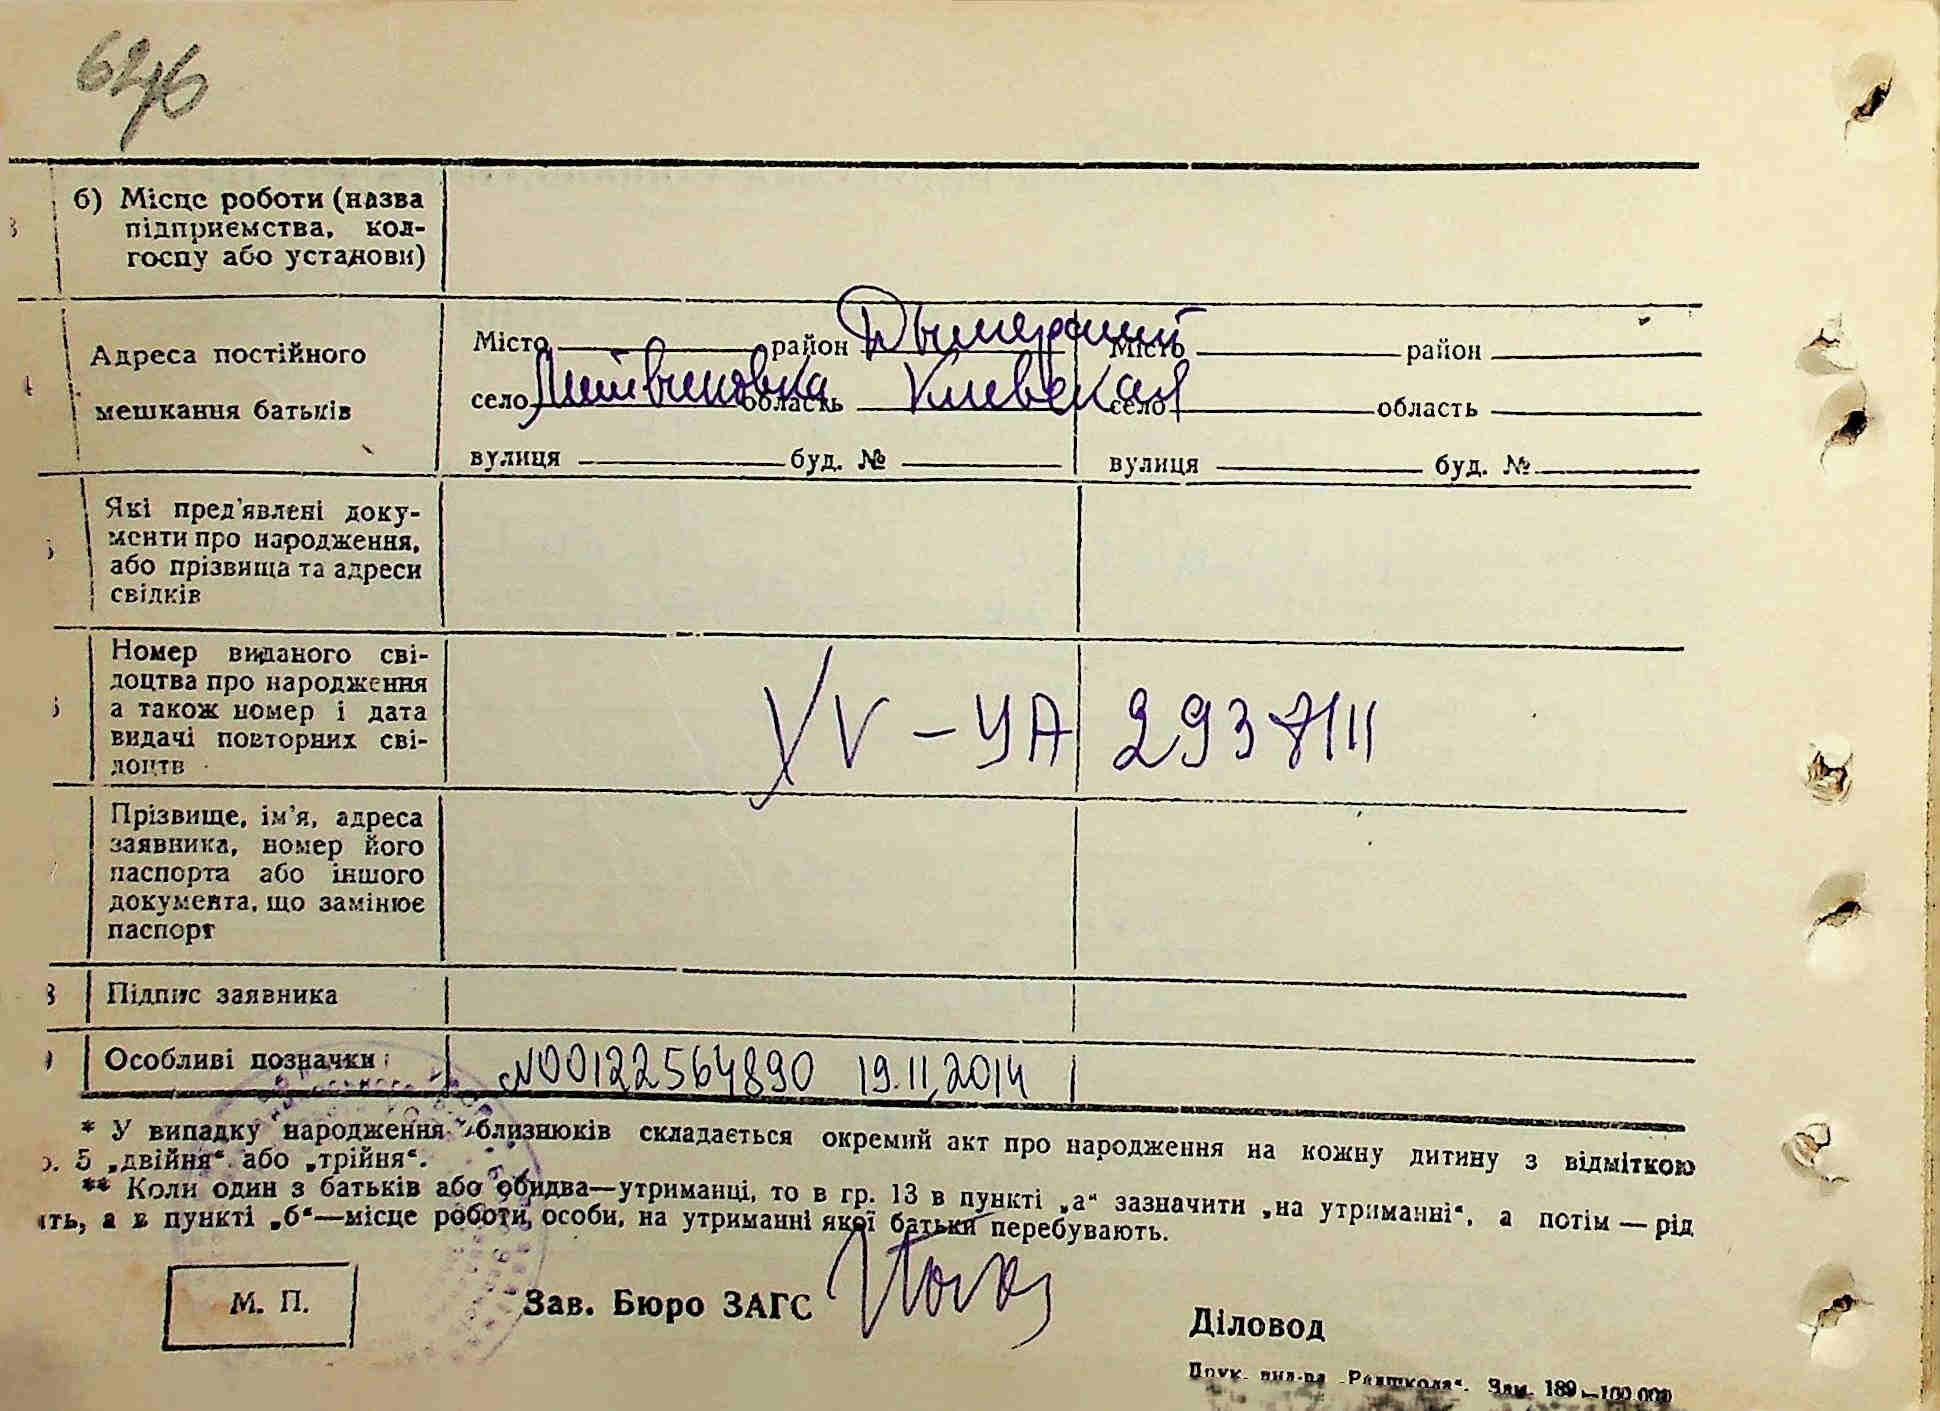 626
б) Місце роботи (назва
підприємства, кол-
госпу або установи)
Адреса постійного
мешкання батьків
Місто район Дымерский Місто район
село Литвиновка область Киевская село область
вулиця буд. № вулиця буд. №
Які пред'явлені доку-
менти про народження,
або прізвища та адреси
свідків
Номер виданого сві-
доцтва про народження
а також номер і дата
видачі повторних сві-
доцтв
XV – УА 293711
Прізвище, ім'я, адреса
заявника, номер його
паспорта або іншого
документа, що замінює
паспорт
8 Підпис заявника
Особливі позначки
N00122564890 19.11.2014
* У випадку народження близнюків складається окремий акт про народження на кожну дитину з відміткою
р. 5 „двійня“ або „трійня“.
** Коли один з батьків або обидва—утриманці, то в гр. 13 в пункті „а“ зазначити „на утриманні“, а потім — рід
ять, а в пункті „б“—місце роботи, особи, на утриманні якої батьки перебувають.
М. П.
Зав. Бюро ЗАГС
Діловод
Друк. вид-ва „Радшкола“. Зам. 189—100.000